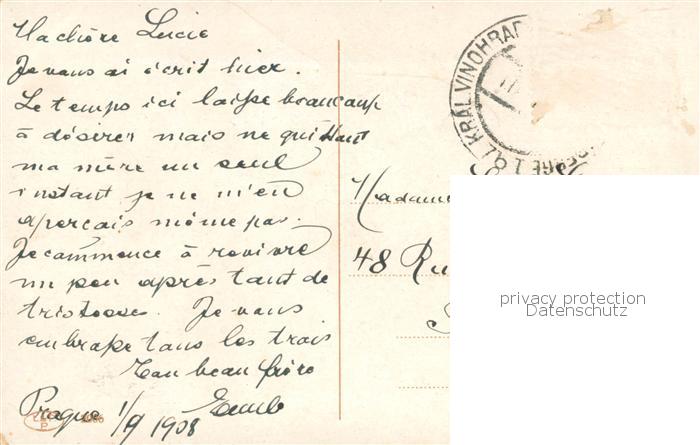 Ma chère Lucie
Je vous ai écrit hier.
Le temps ici laisse beaucoup
à désirer mais ne quittant
ma mère un seul
instant je ne m'en
aperçais même pas.
Je commence à revivre
un peu après tant de
tristesse. Je vous
embrasse tous les trois
Ton beau frère
Prague 1/9 1908
KRÁL. VINOHRAD
Madame
48 Ru
privacy protection
Datenschutz